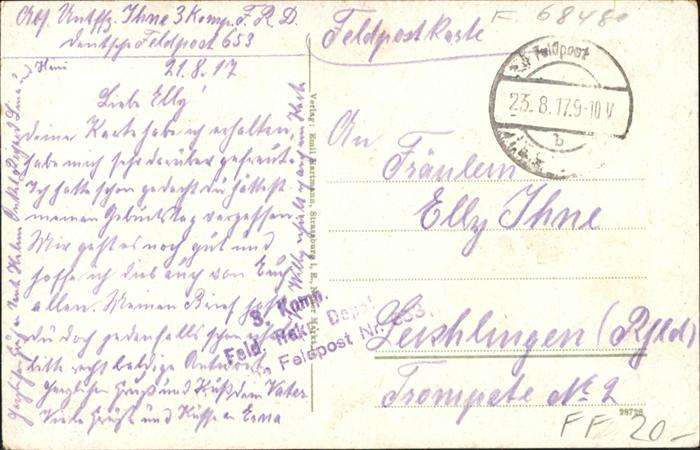 Abs. Untffz. Ihne 3 Komp. F. R. D.
Deutsche Feldpost 653
21.8.17
Liebe Elly
deine Karte habe ich erhalten,
habe mich sehr darüber gefreut.
Ich hatte schon gedacht du hättest
meinen Geburtstag vergessen.
Mir geht es noch gut und
hoffe ich dies auch von Euch
allen. Meinen Brief hast
du doch jedenfalls schon
bitte recht baldige Antwort
Herzlichen Gruß und Kuß dein Vater
Viele Grüße und Küsse an Erna
Willy auch eine Karte
Verlag: Emil Hartmann, Strassburg i. E.
3. Komp.
Feld. Rekr. Depot
Feldpost Nr. 653
Feldpostkarte
F 6848
Feldpost
23.8.17.9-10 V
b
An
Fräulein
Elly Ihne
Leichlingen (Rhld)
Trompete No 2
28728
FF 20.-